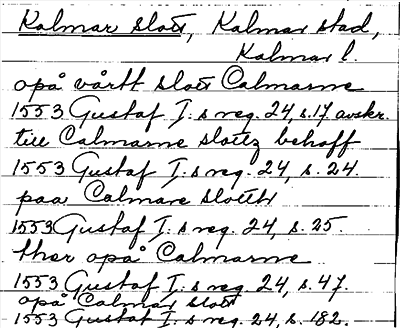 Kalmar slott, Kalmar stad,
Kalmar l.
opå vårtt slott Calmarne
1553 Gustaf I:s reg. 24, s. 17 avskr.
till Calmarne slottz behoff
1553 Gustaf I:s reg. 24, s. 24.
paa Calmare slotth
1553 Gustaf I:s reg. 24, s. 25.
ther opå Calmarne
1553 Gustaf I:s reg. 24, s. 47.
opå Calmar slott
1553 Gustaf I:s reg. 24, s. 182.